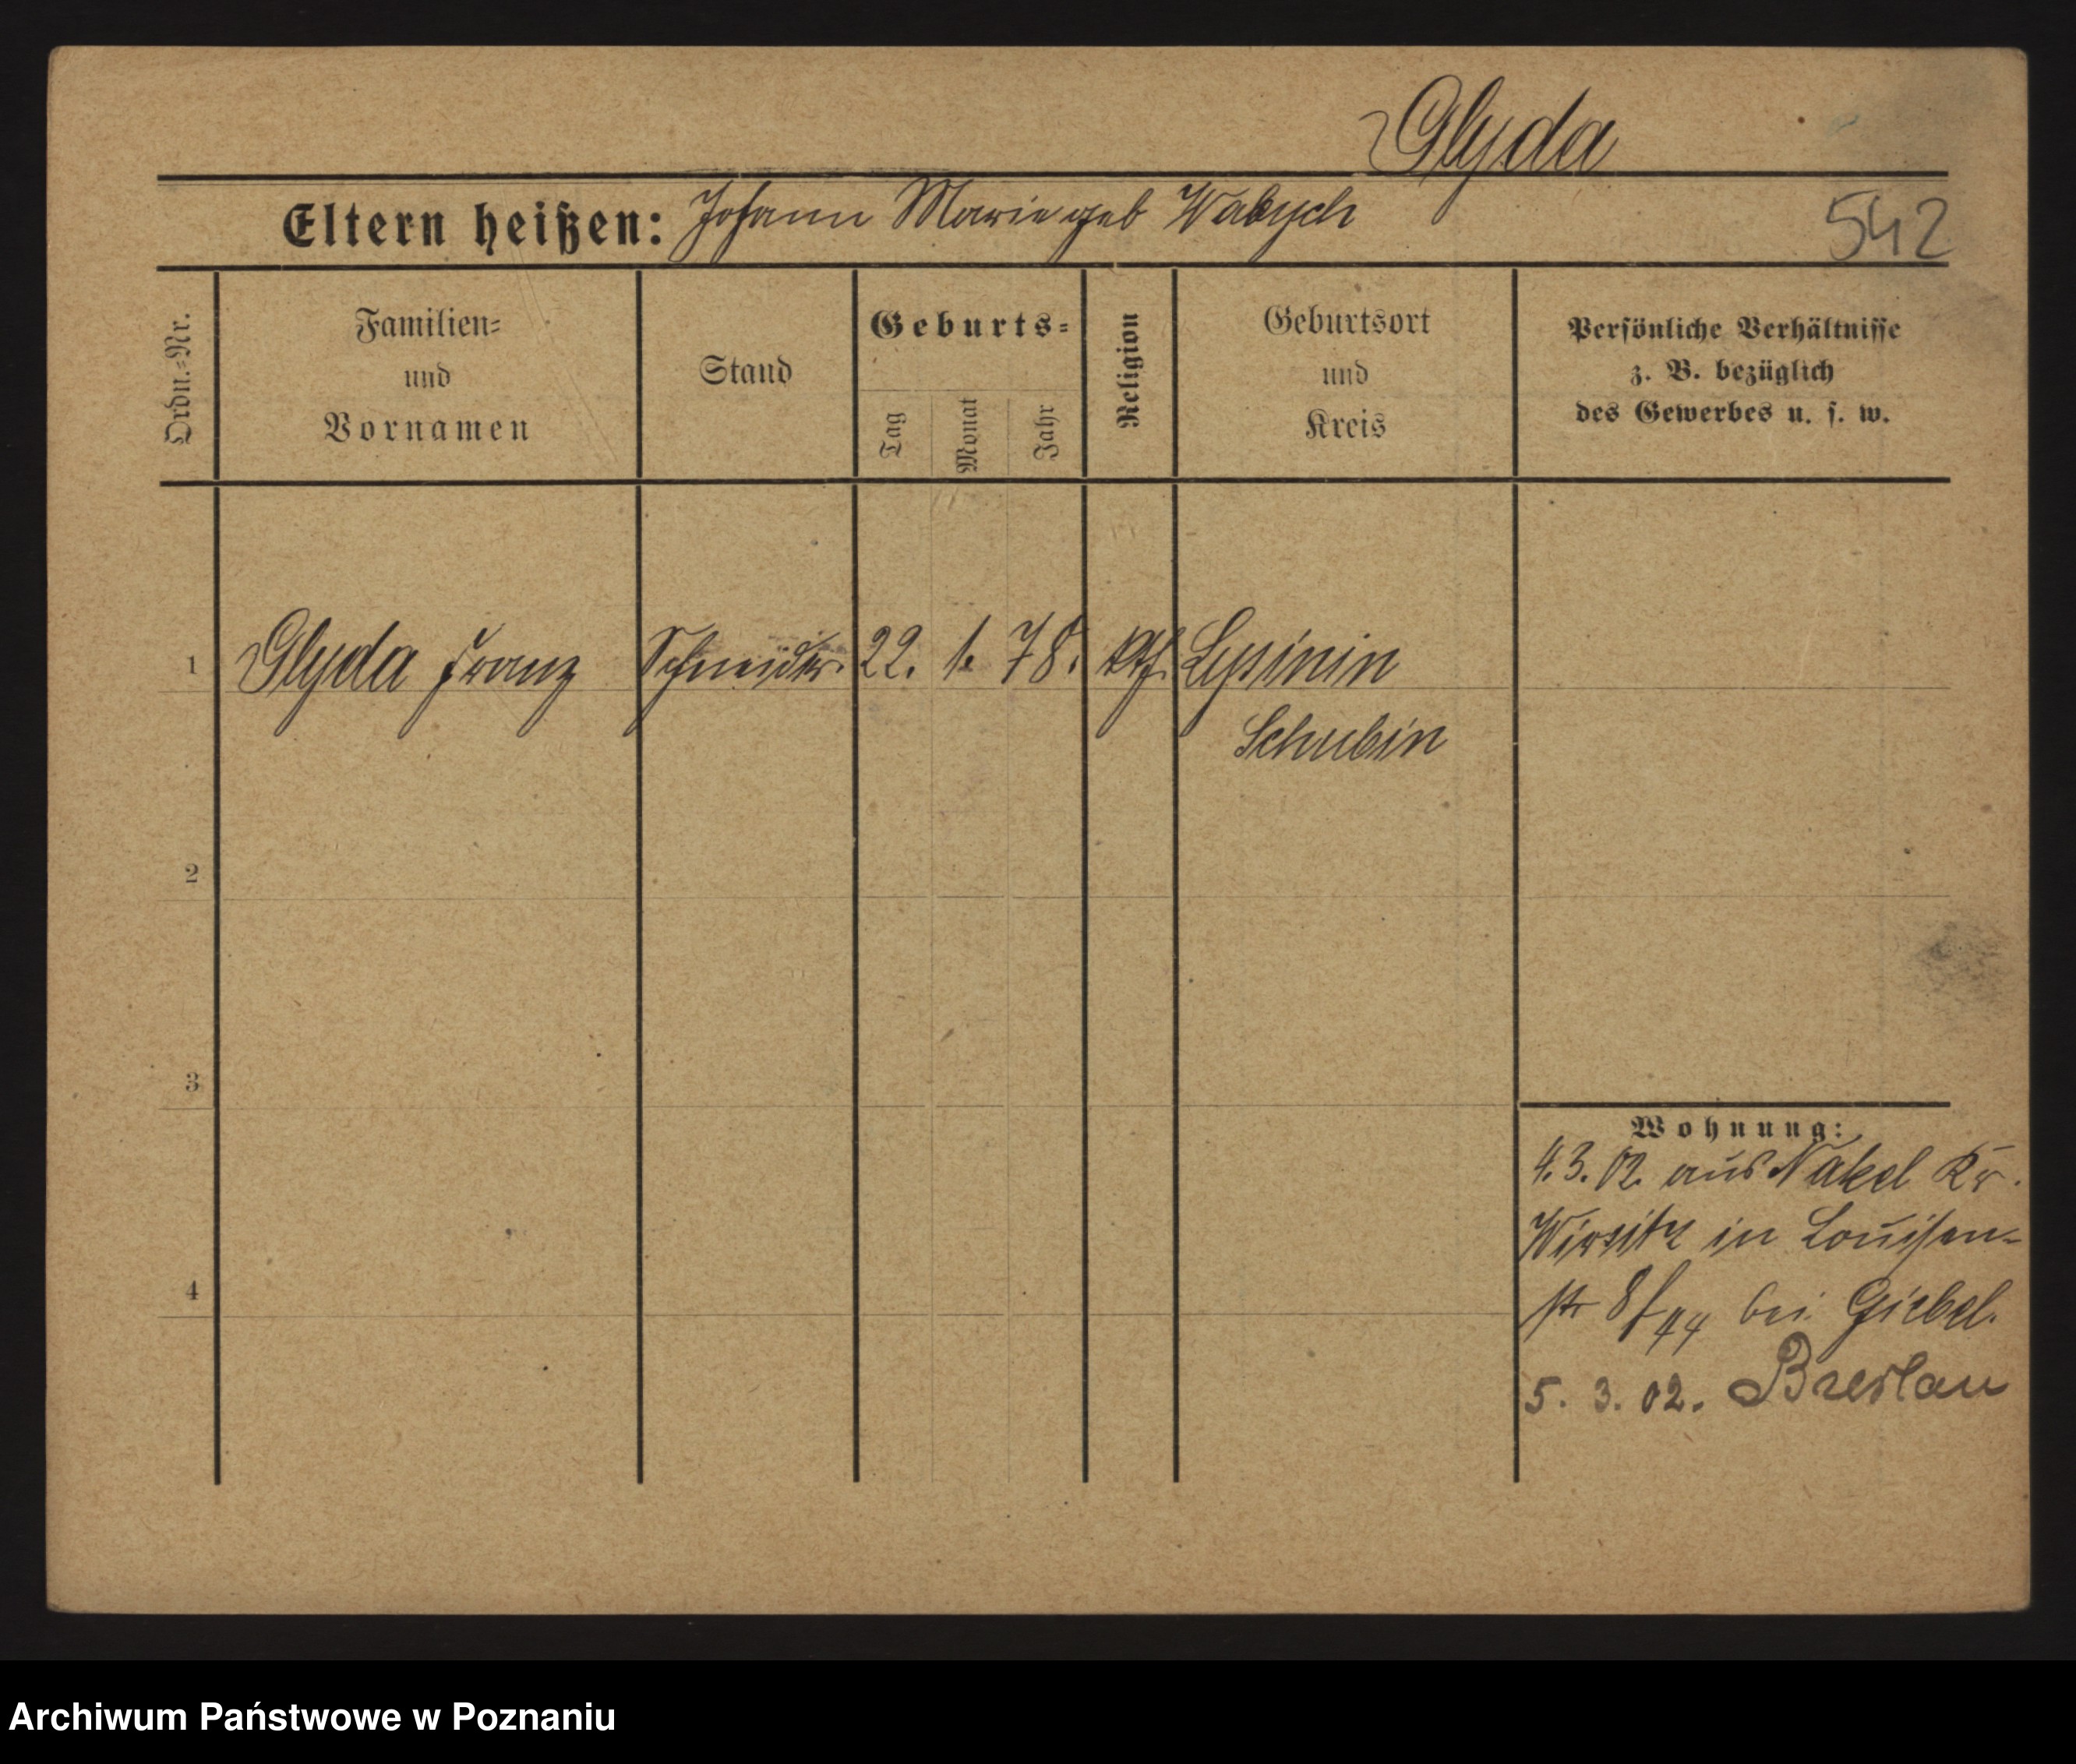 Glyda
Eltern heißen: Johann Marie geb Wabych
542
Ordn.=Nr.
Familien=
und
Vornamen
Stand
Geburts=
Tag
Monat
Jahr
Religion
Geburtsort
und
Kreis
Persönliche Verhältnisse
z. B. bezüglich
des Gewerbes u. s. w.
1 Glyda Franz Schneider. 22. 1. 78. kth. Lysinin
Schubin
2
3
4
Wohnung:
4.3.02. aus Nakel Kr.
Wirsitz in Louisen=
str 8/44 bei Giebel.
5. 3. 02. Breslau
Archiwum Państwowe w Poznaniu